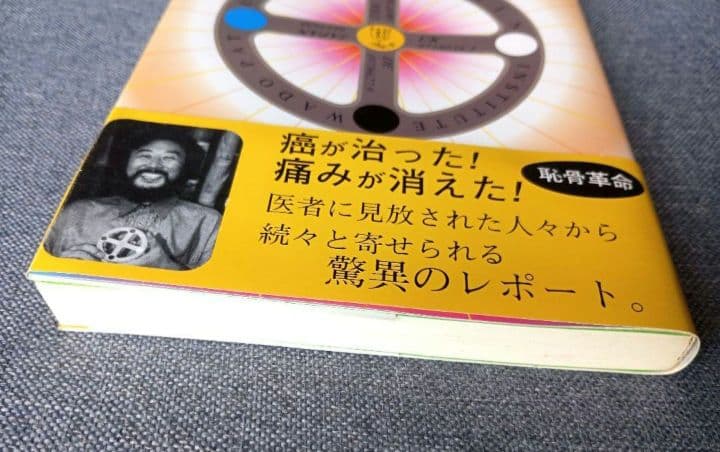 INSTITUTE
WADO
癌が治った!
痛みが消えた!
恥骨革命
医者に見放された人々から
続々と寄せられる
驚異のレポート。